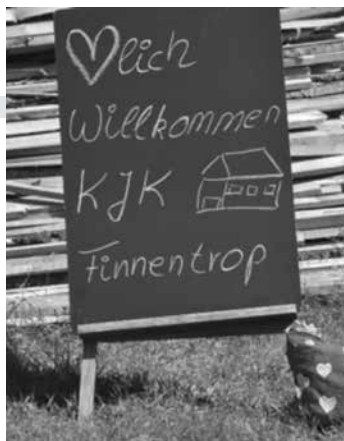 ♡lich
Willkommen
KJK
Finnentrop